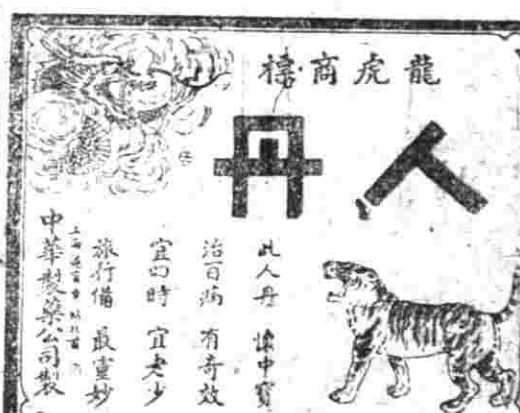 龍虎商標
人丹
此人丹 懷中寶
治百病 有奇效
宜四時 宜老少
旅行備 最靈妙
中華製藥公司製